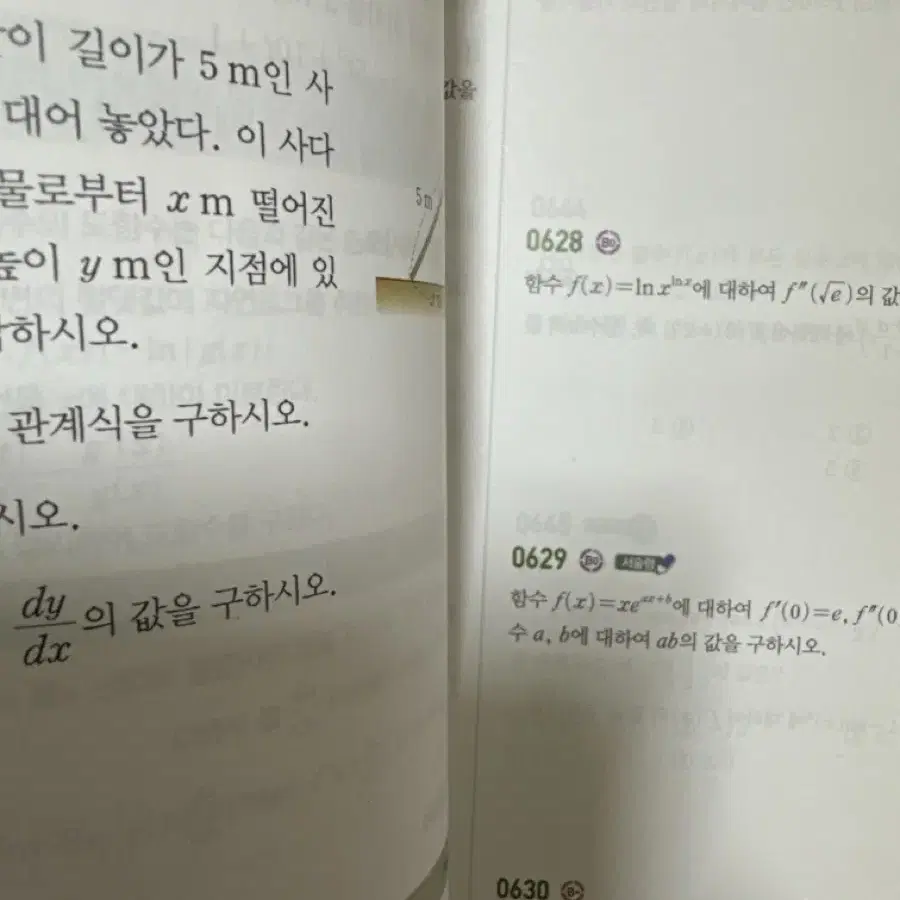 이 길이가 5 m인 사
대어 놓았다. 이 사다
물로부터 x m 떨어진
높이 y m인 지점에 있
하시오.
관계식을 구하시오.
시오.
dy/dx의 값을 구하시오.
5 m
값을
0628
함수 f(x)=ln x^{ln x}에 대하여 f″(√e)의 값
0629 서술형
함수 f(x)=xe^{ax+b}에 대하여 f′(0)=e, f″(0
수 a, b에 대하여 ab의 값을 구하시오.
0630